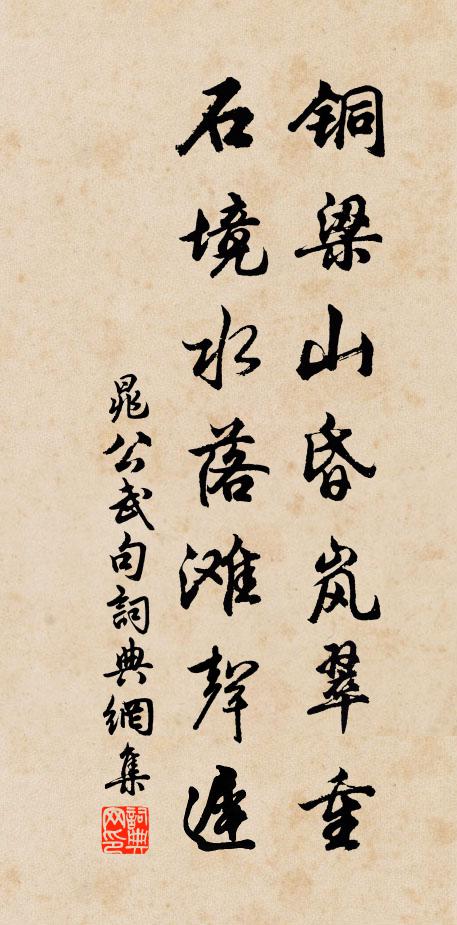 铜梁山昏岚翠重
石境水落滩聲遲
晁公武句詞典網集
詞典网印